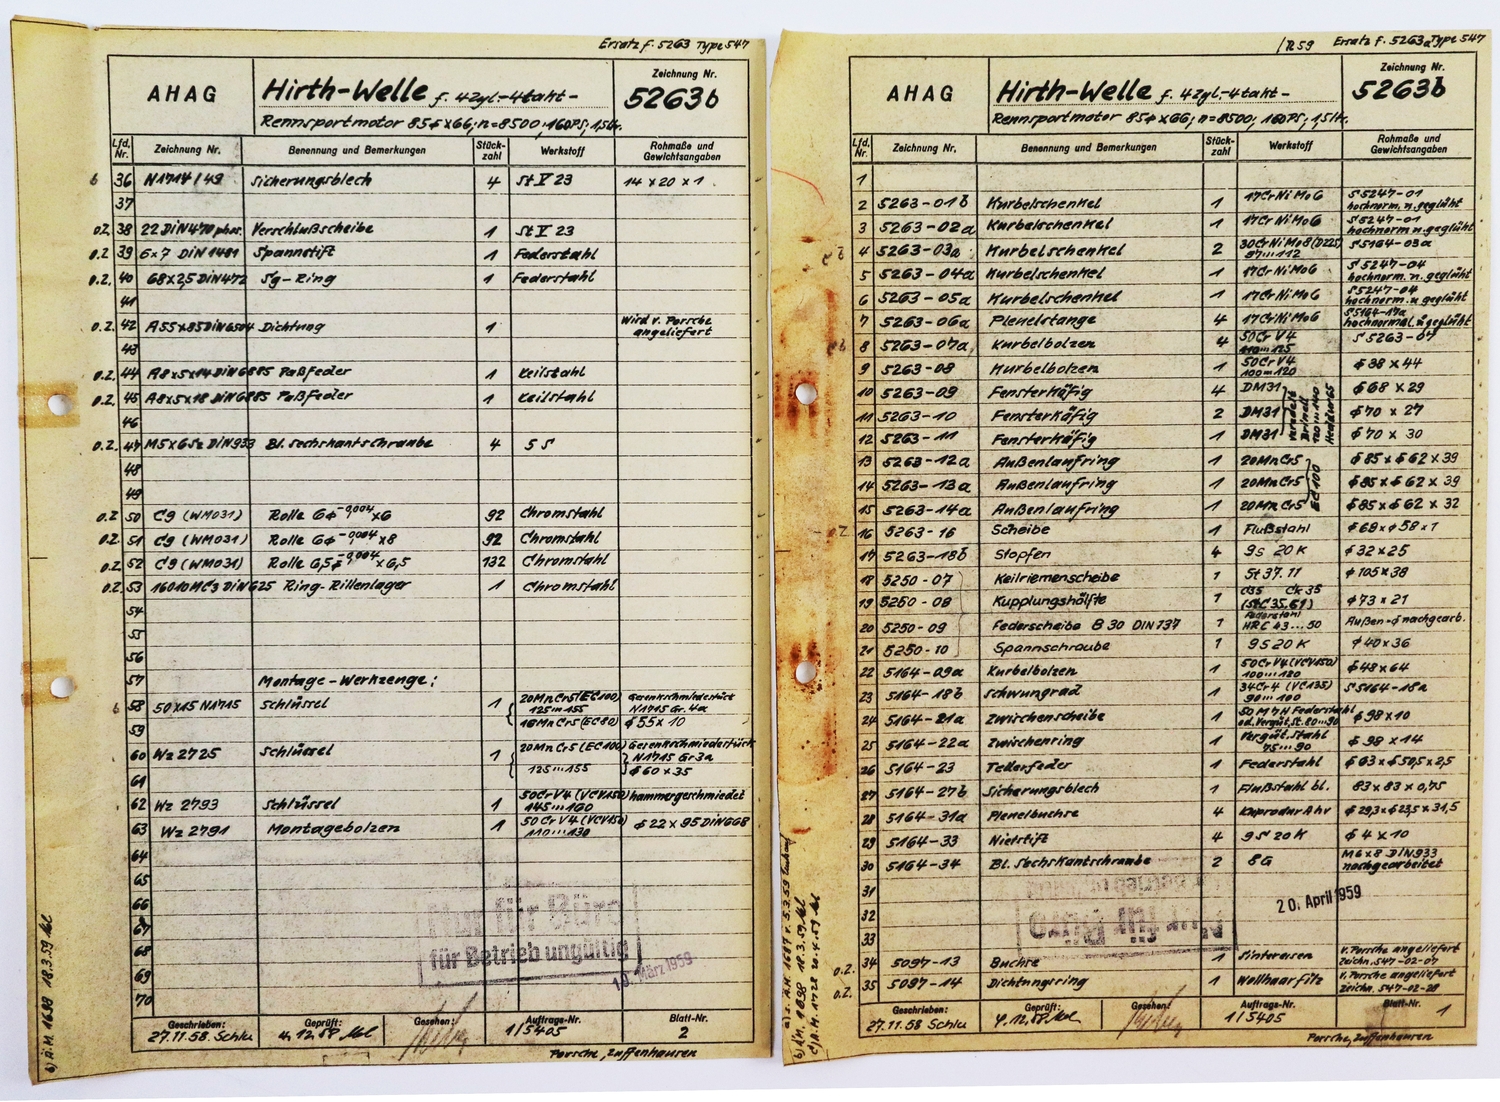 Ersatz f. 5263 Type 547
AHAG
Hirth-Welle f. 4zyl.-4takt-
Rennsportmotor 85ϕ x 66; n=8500; 160PS; 1,5ltr.
Zeichnung Nr.
5263b
Lfd. Nr. Zeichnung Nr. Benennung und Bemerkungen Stück-zahl Werkstoff Rohmaße und Gewichtsangaben
b 36 N1714/49 Sicherungsblech 4 St V 23 14 x 20 x 1
37
o.Z. 38 22 DIN 470 phos. Verschlußscheibe 1 St V 23
o.Z. 39 6x7 DIN 1481 Spannstift 1 Federstahl
o.Z. 40 68x2,5 DIN 472 Sg-Ring 1 Federstahl
41
o.Z. 42 A55x85 DIN 6504 Dichtung 1 Wird v. Porsche angeliefert
43
o.Z. 44 A8x5x14 DIN 6885 Paßfeder 1 Keilstahl
o.Z. 45 A8x5x18 DIN 6885 Paßfeder 1 Keilstahl
46
o.Z. 47 DIN 933 Bl. Sechskantschraube 4 5 S
48
49
o.Z. 50 C9 (WM031) Rolle 6ϕ -0,004 x6 92 Chromstahl
o.Z. 51 C9 (WM031) Rolle 6ϕ -0,004 x8 92 Chromstahl
o.Z. 52 C9 (WM031) Rolle 6,5ϕ -0,004 x6,5 132 Chromstahl
o.Z. 53 16010 MC3 DIN 625 Ring-Rillenlager 1 Chromstahl
54
55
56
57 Montage-Werkzeuge:
b 58 50x15 N1715 Schlüssel 1 20MnCr5 (EC100) 125...155 Gesenkschmiedestück N1715 Gr. 4a
59 16MnCr5 (EC80) ϕ 55 x 10
60 Wz 2725 Schlüssel 1 20MnCr5 (EC100) Gesenkschmiedestück N1715 Gr 3a
61 125...155 ϕ 60 x 35
62 Wz 2793 Schlüssel 1 50CrV4 (VCV150) 145...160 hammergeschmiedet
63 Wz 2791 Montagebolzen 1 50CrV4 (VCV150) 110...130 ϕ 22 x 95 DIN 668
64
65
66
67
68
69
70
Nur für Büro
für Betrieb ungültig
18. März 1959
b) Ä.M. 1698 18.3.59
Geschrieben: 27.11.58 Schlu
Geprüft: 4.12.58
Gesehen:
Auftrags-Nr. 1/5405
Blatt-Nr. 2
Porsche, Zuffenhausen
/R 59 Ersatz f. 5263a Type 547
AHAG
Hirth-Welle f. 4zyl.-4takt-
Rennsportmotor 85ϕ x 66; n=8500; 160PS; 1,5ltr.
Zeichnung Nr.
5263b
Lfd. Nr. Zeichnung Nr. Benennung und Bemerkungen Stück-zahl Werkstoff Rohmaße und Gewichtsangaben
1
2 5263-01b Kurbelschenkel 1 17CrNiMo6 S 5247-01 hochnorm. u. geglüht
3 5263-02a Kurbelschenkel 1 17CrNiMo6 S 5247-01 hochnorm u. geglüht
4 5263-03a Kurbelschenkel 2 30CrNiMo8 97...112 S 5164-03a
5 5263-04a Kurbelschenkel 1 17CrNiMo6 S 5247-04 hochnorm. u. geglüht
6 5263-05a Kurbelschenkel 1 17CrNiMo6 S 5247-04 hochnorm. u. geglüht
7 5263-06a Pleuelstange 4 17CrNiMo6 S 5164-17a hochnormal. u. geglüht
8 5263-07a Kurbelbolzen 4 50CrV4 110...125 S 5263-07
9 5263-08 Kurbelbolzen 1 50CrV4 100...120 ϕ 38 x 44
10 5263-09 Fensterkäfig 4 DM31 ϕ 68 x 29
11 5263-10 Fensterkäfig 2 DM31 ϕ 70 x 27
12 5263-11 Fensterkäfig 1 DM31 ϕ 70 x 30
13 5263-12a Außenlaufring 1 20MnCr5 ϕ 85 x ϕ 62 x 39
14 5263-13a Außenlaufring 1 20MnCr5 EC100 ϕ 85 x ϕ 62 x 39
15 5263-14a Außenlaufring 1 20MnCr5 ϕ 85 x ϕ 62 x 32
16 5263-16 Scheibe 1 Flußstahl ϕ 68 x ϕ 58 x 1
17 5263-18b Stopfen 4 9S 20K ϕ 32 x 25
18 5250-07 Keilriemenscheibe 1 St 37.11 ϕ 105 x 38
19 5250-08 Kupplungshälfte 1 C35 Ck 35 (StC 35.61) ϕ 73 x 21
20 5250-09 Federscheibe B 30 DIN 137 1 Federstahl HRC 43...50 Außen-ϕ nachgearb.
21 5250-10 Spannschraube 1 9S 20 K ϕ 40 x 36
22 5164-09a Kurbelbolzen 1 50CrV4 (VCV150) 100...120 ϕ 48 x 64
23 5164-18b Schwungrad 1 34Cr4 (VC135) 90...100 S 5164-18a
24 5164-21a Zwischenscheibe 1 50 M 7 N Federstahl od. Vergüt. St. 80...90 ϕ 98 x 10
25 5164-22a Zwischenring 1 Vergüt. Stahl 75...90 ϕ 98 x 14
26 5164-23 Tellerfeder 1 Federstahl ϕ 63 x ϕ 50,5 x 2,5
27 5164-27b Sicherungsblech 1 Flußstahl bl. 83 x 83 x 0,75
28 5164-31a Pleuelbuchse 4 Kuprodur Ahv ϕ 29,3 x ϕ 23,5 x 31,5
29 5164-33 Nietstift 4 9S 20K ϕ 4 x 10
30 5164-34 Bl. Sechskantschraube 2 8G M6 x 8 DIN 933 nachgearbeitet
31
32
33
34 5097-13 Buchse 1 Sintereisen v. Porsche angeliefert Zeichn. 547-02-07
o.Z. 35 5097-14 Dichtungsring 1 Wollhaarfilz v. Porsche angeliefert Zeichn. 547-02-28
o.Z.
20. April 1959
Nur für Büro
Geschrieben: 27.11.58 Schlu
Geprüft: 4.12.58
Gesehen:
Auftrags-Nr. 1/5405
Blatt-Nr. 1
Porsche, Zuffenhausen